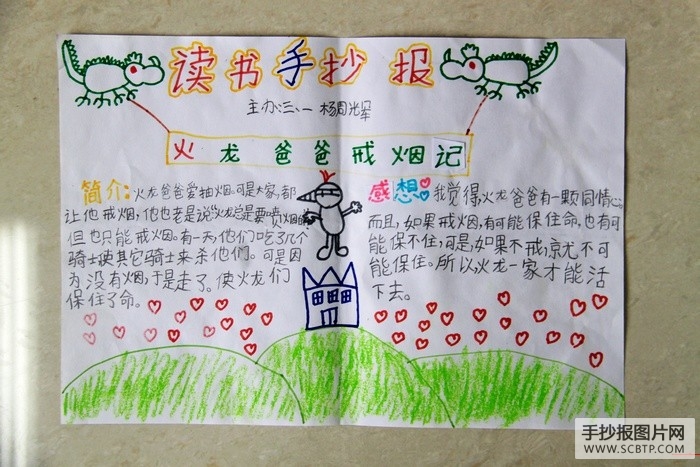 读书手抄报
主办:三、一 杨周光军
火龙爸爸戒烟记
简介:火龙爸爸爱抽烟。可是大家,都
让他戒烟,他也老是说"火龙总是要喷烟的"
但也只能戒烟。有一天,他们吃了几个
骑士使其它骑士来杀他们。可是因
为没有烟,于是走了。使火龙们
保住了命。
感想:我觉得,火龙爸爸有一颗同情心
而且,如果戒烟,有可能保住命,也有可
能保不住,可是,如果不戒,就尤不可
能保住。所以火龙一家才能活
下去。
手抄报图片网
WWW.SCBTP.COM